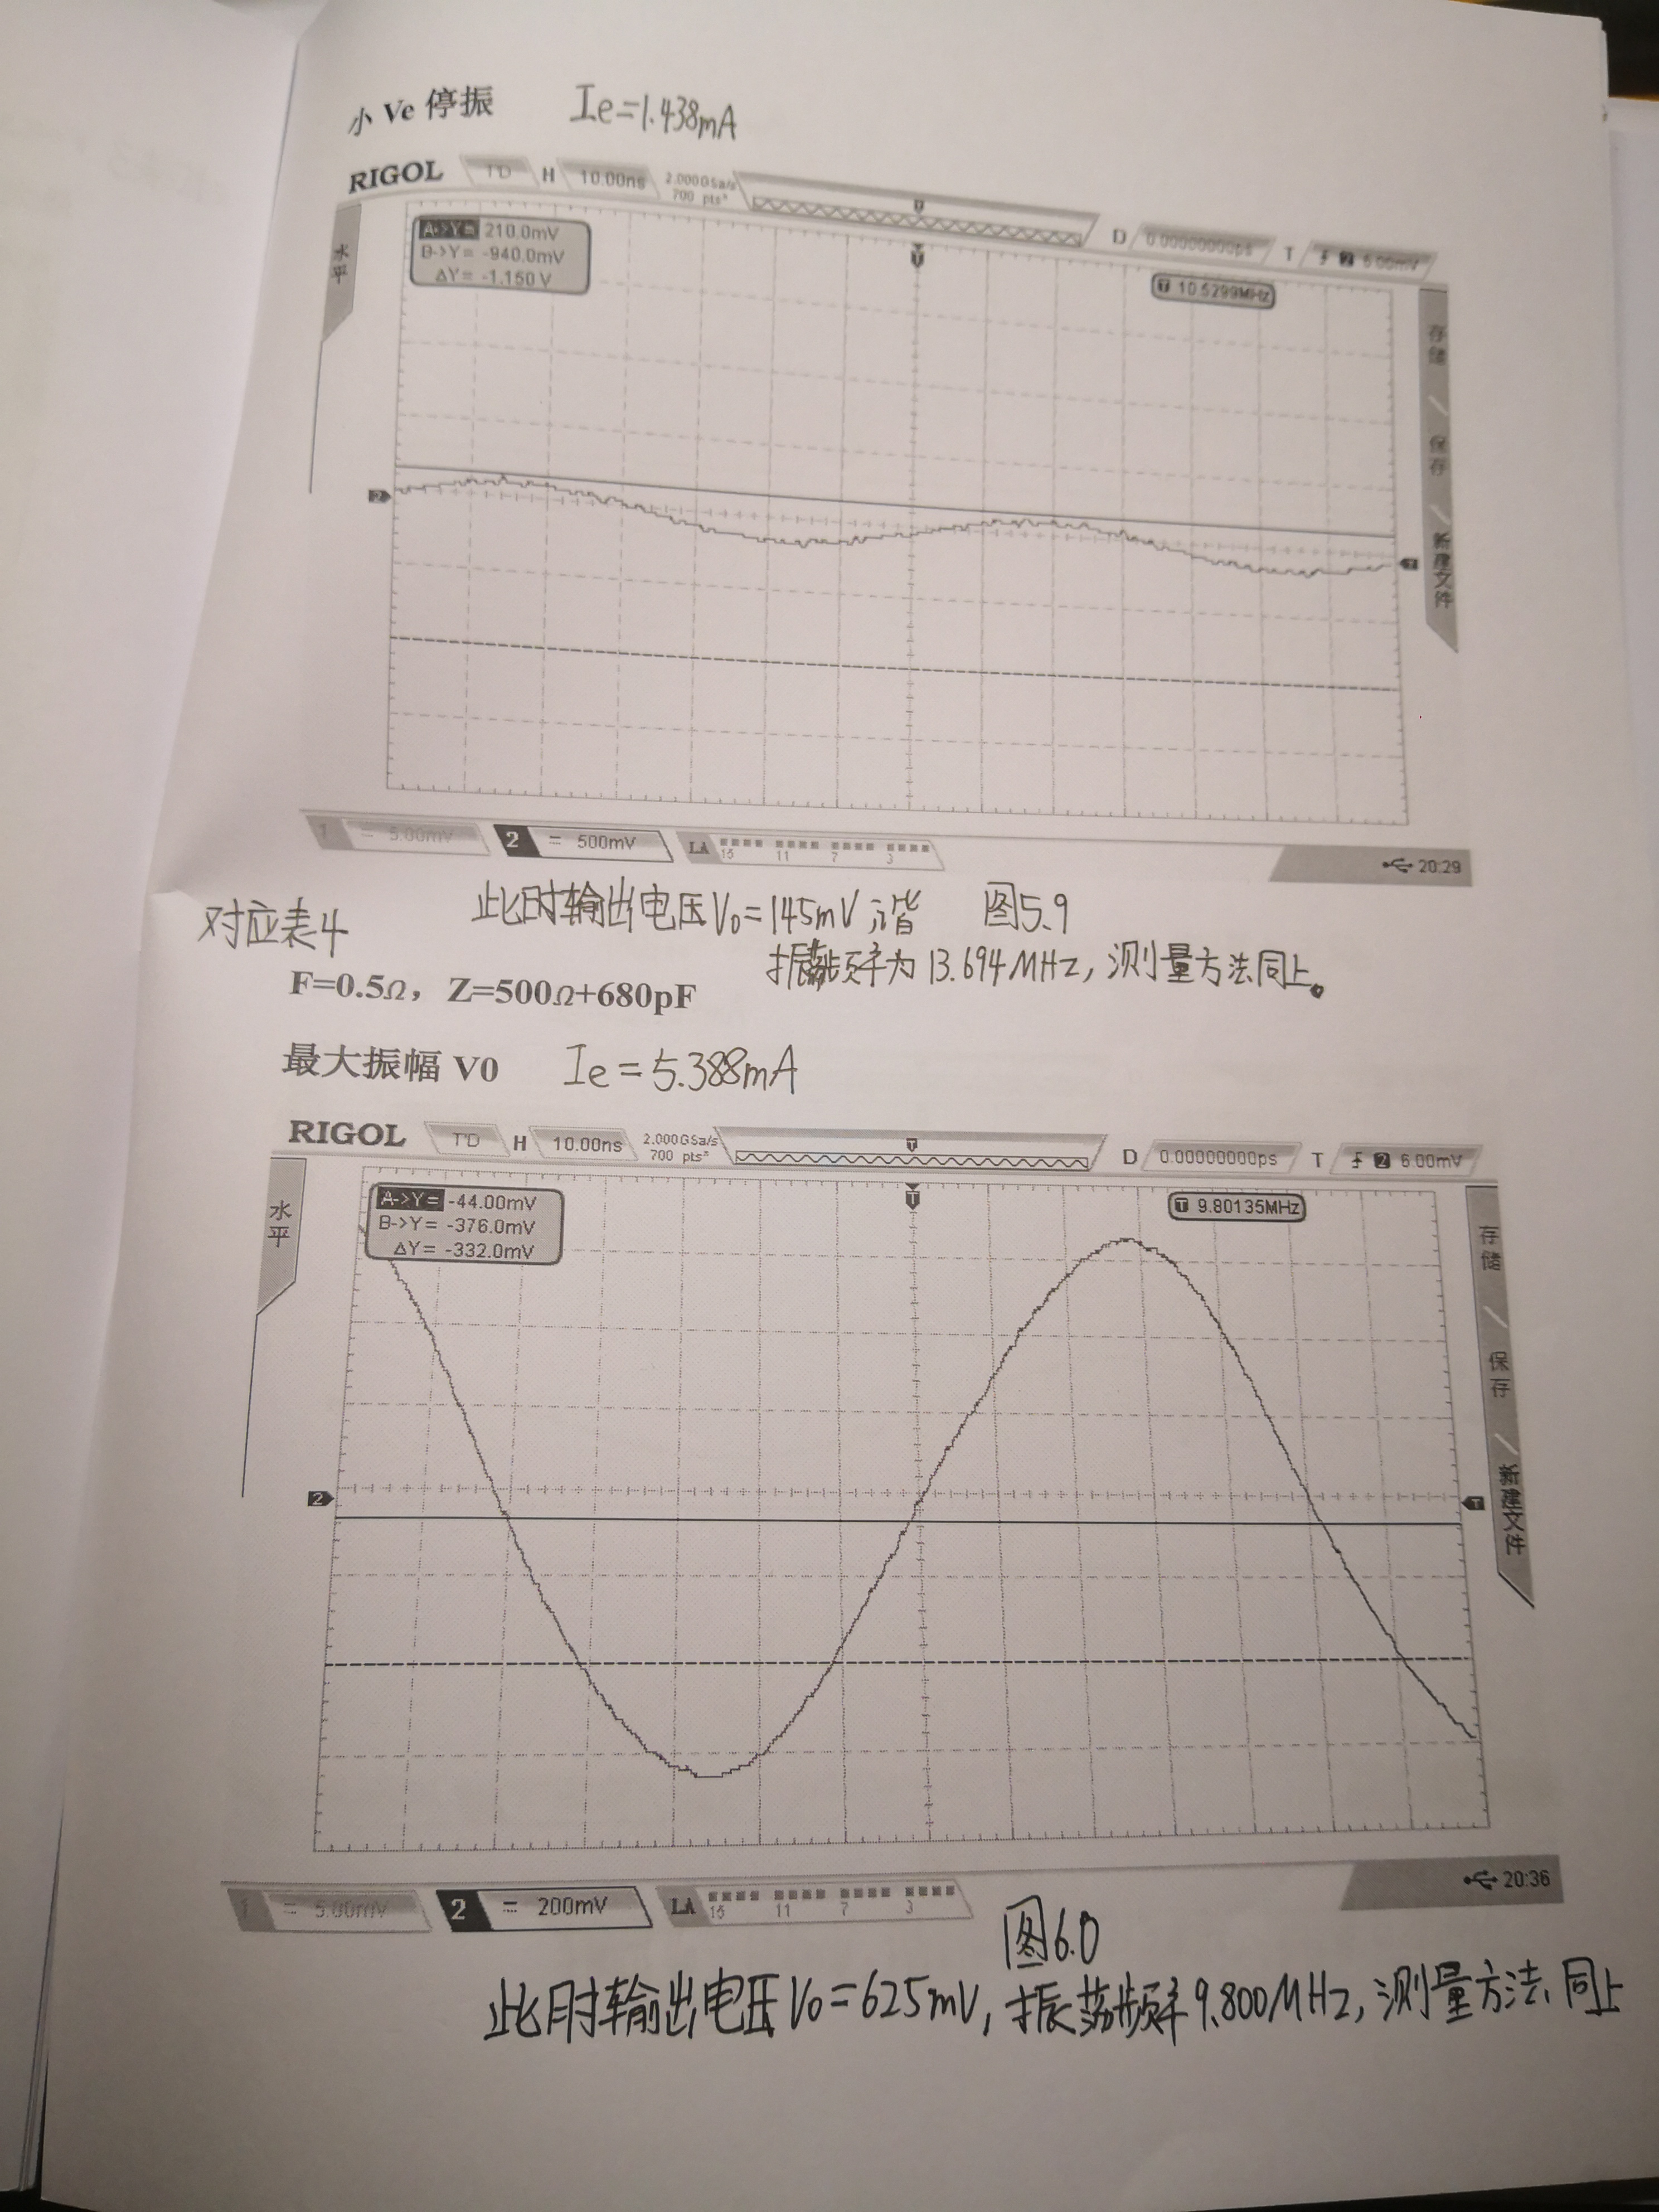 小 Ve 停振 Ie=1.438mA
RIGOL T'D H 10.00ns 2.000GSa/s 700 pts D 0.00000000ps T 2 6.00mV
水平
A->Y= 210.0mV
B->Y= -940.0mV
ΔY= -1.150 V
T 10.5299MHz
存储
保存
新建文件
2
T
1 = 5.00mV 2 = 500mV LA 15 11 7 3 20:29
此时输出电压V0=145mV 谐 图5.9
振荡频率为 13.694MHz,测量方法同上。
对应表4
F=0.5Ω, Z=500Ω+680pF
最大振幅 V0 Ie=5.388mA
RIGOL T'D H 10.00ns 2.000GSa/s 700 pts D 0.00000000ps T 2 6.00mV
水平
A->Y= -44.00mV
B->Y= -376.0mV
ΔY= -332.0mV
T 9.80135MHz
存储
保存
新建文件
2
T
1 = 5.00mV 2 = 200mV LA 15 11 7 3 20:36
图6.0
此时输出电压V0=625mV,振荡频率9.800MHz,测量方法同上